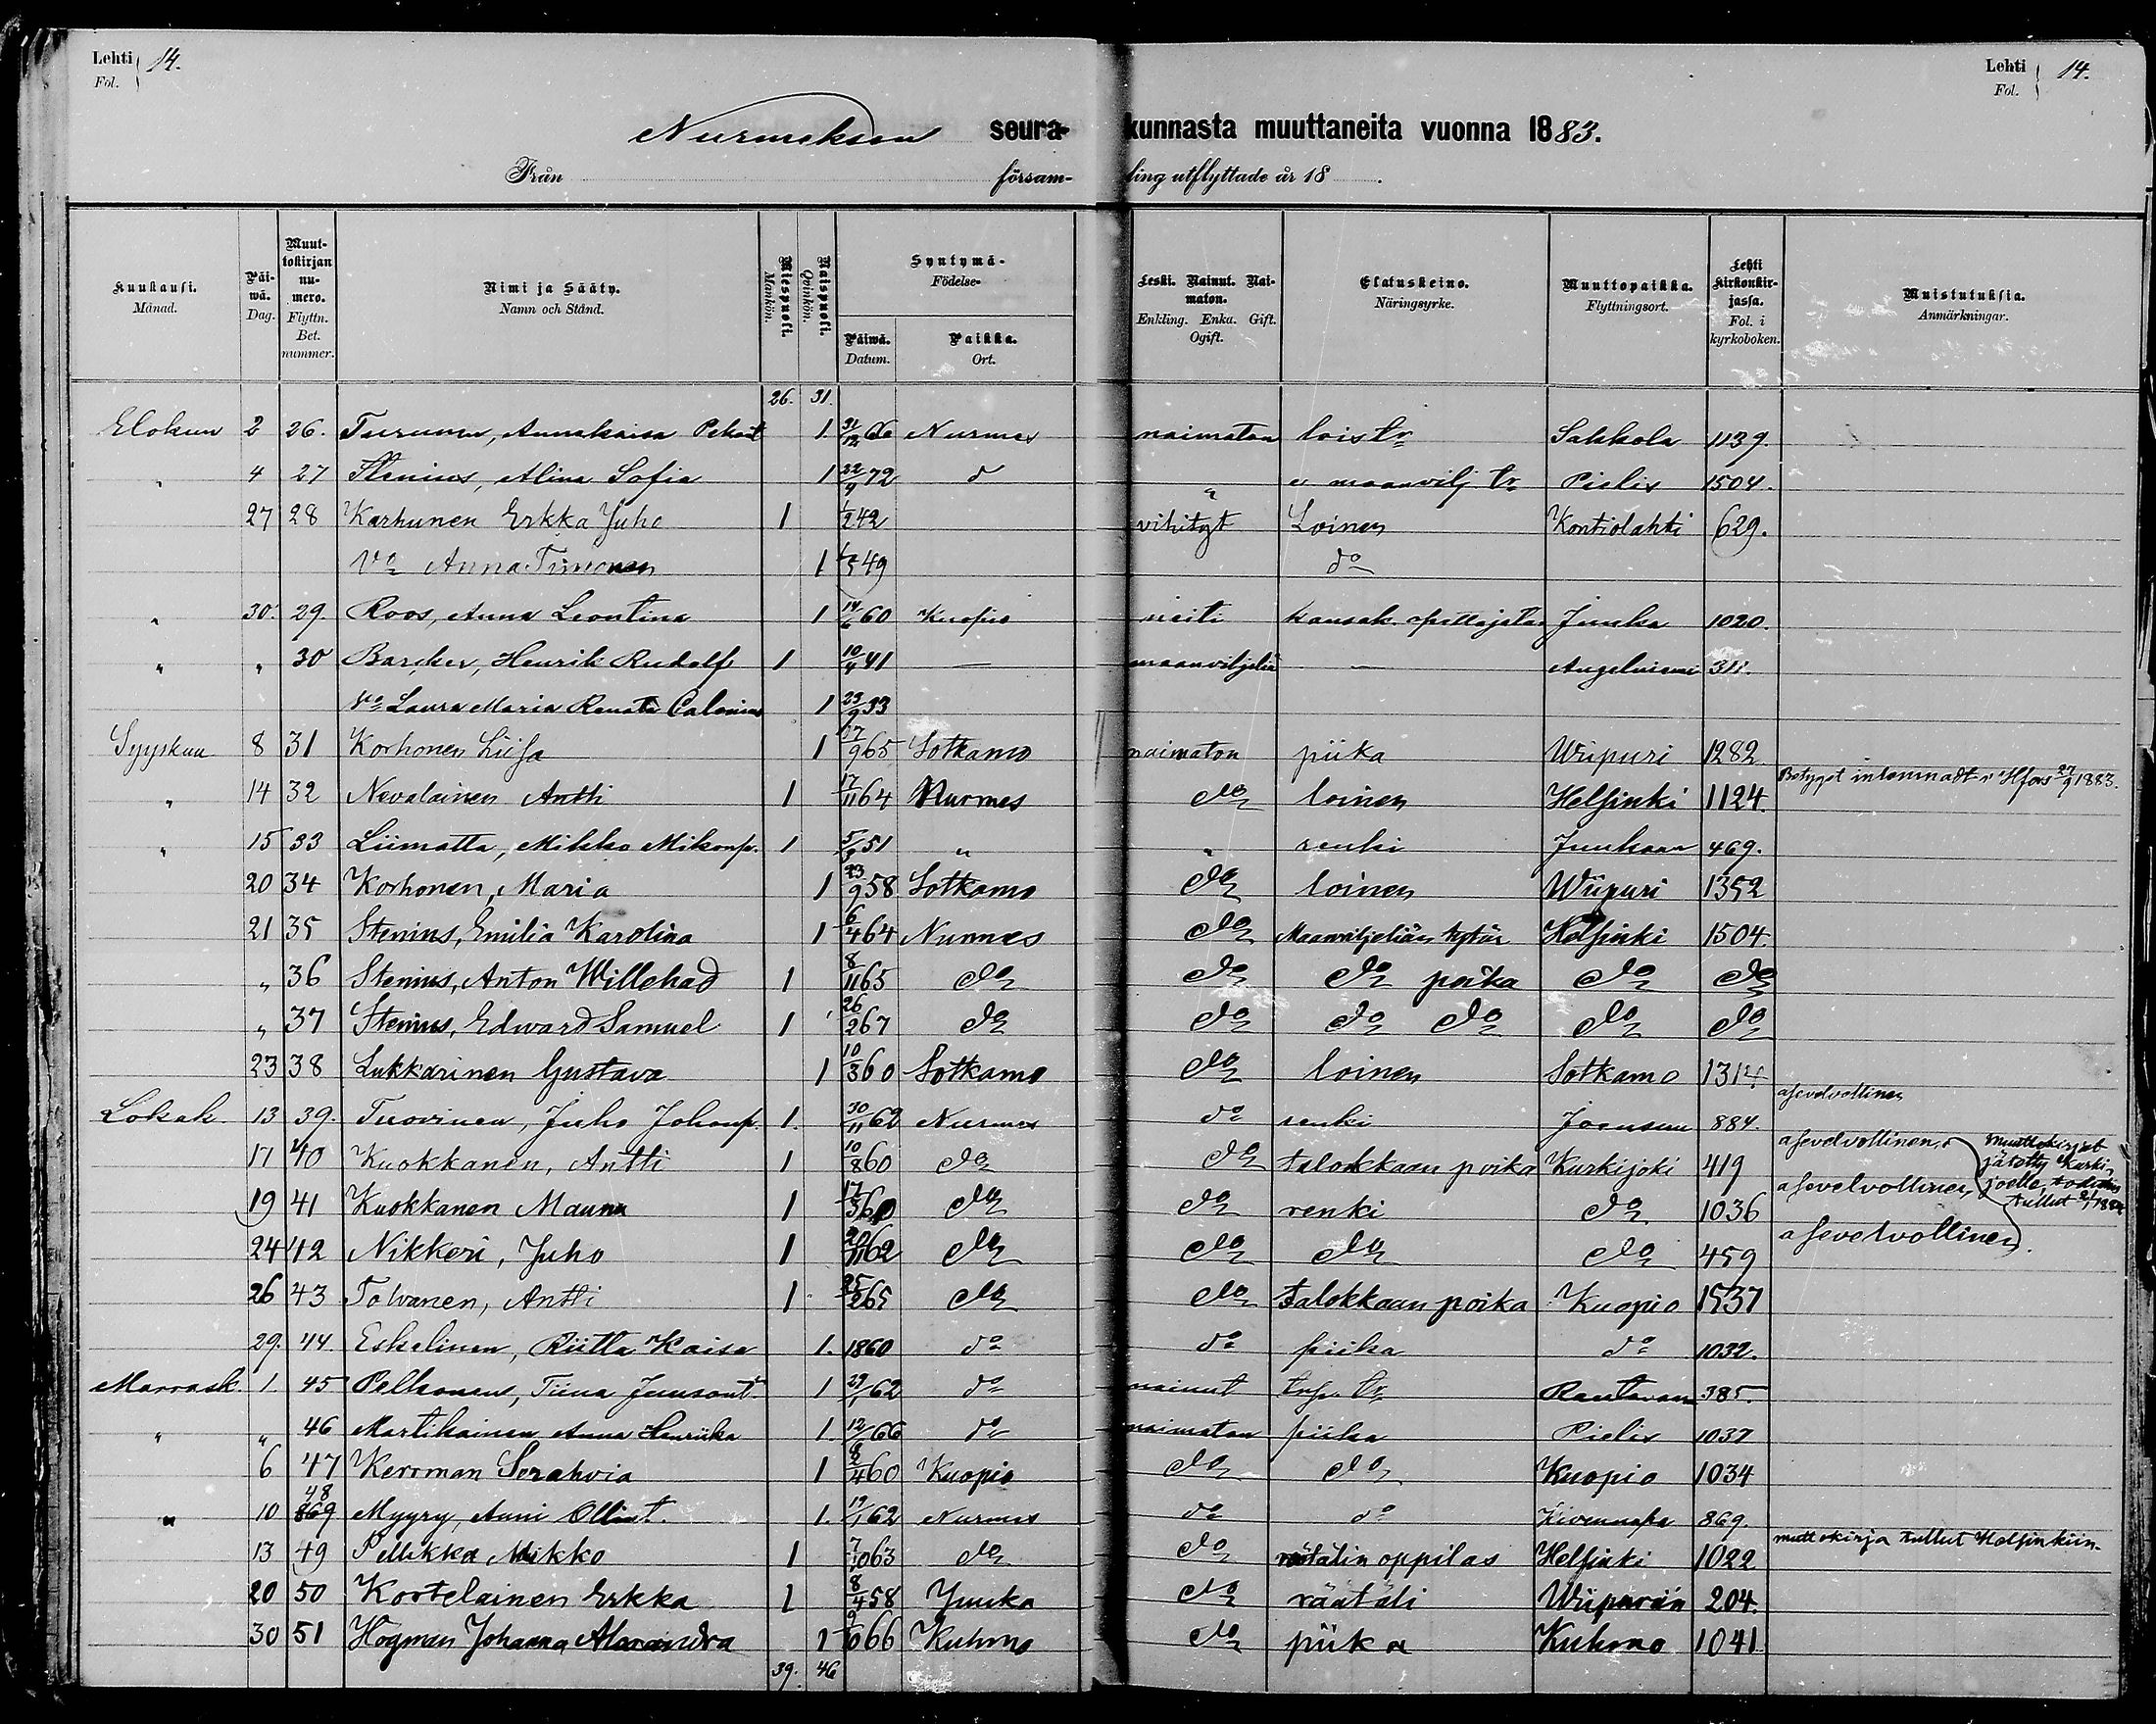 Lehti Fol. 14. Lehti Fol. 14.
Nurmeksen seurakunnasta muuttaneita vuonna 1883.
Från församling utflyttade år 18
Kuukausi. Månad. Päiwä. Dag. Muuttokirjan numero. Flyttn. Bet. nummer. Nimi ja Sääty. Namn och Stånd. Miespuoli. Mankön. Naispuoli. Qvinkön. Syntymä- Födelse- Päiwä. Datum. Paikka. Ort. Leski. Nainut. Naimaton. Enkling. Enka. Gift. Ogift. Elatuskeino. Näringsyrke. Muuttopaikka. Flyttningsort. Lehti kirkonkirjassa. Fol. i kyrkoboken. Muistutuksia. Anmärkningar.
26. 31.
Elokuu 2 26. Turunen, Annakaisa Pekant 1. 31/12 66 Nurmes naimaton lois tr Sakkola 1139.
" 4 27 Stenius, Alina Sofia 1 22/9 72 d " e maanvilj. tr Pielis 1504.
27 28 Karhunen Erkka Juho 1 1/2 42 vihityt Loinen Kontiolahti 629.
Vo Anna Timonen 1 1/5 49 do
" 30. 29. Roos, Anna Leontina 1 14/6 60 Kuopio neiti kansak. opettajatar Juuka 1020.
" " 30 Barcker, Henrik Rudolf 1 10/4 41 — maanviljeliä — Angelniemi 311.
Vo Laura Maria Renata Calonius 1 23/9 33
Syyskuu 8 31 Korhonen Liisa 1 17/9 65 Sotkamo naimaton piika Wiipuri 1282
" 14 32 Nevalainen Antti 1 17/11 64 Nurmes do loinen Helsinki 1124. Betyget inlemnadt i Hfors 27/9 1883.
" 15 33 Liimatta, Mikko Mikonp. 1 5/8 51 " " renki Juukaan 469.
20 34 Korhonen, Maria 1 23/9 58 Sotkamo do loinen Wiipuri 1352
21 35 Stenius, Emilia Karolina 1 6/4 64 Nurmes do Maanviljeliän tytär Helsinki 1504.
" 36 Stenius, Anton Willehad 1 8/11 65 do do do poika do do
" 37 Stenius, Edward Samuel 1 26/2 67 do do do do do do
23 38 Lukkarinen Gustava 1 10/3 60 Sotkamo do loinen Sotkamo 1314
Lokak. 13 39. Tuovinen, Juho Johanp. 1. 30/11 62 Nurmes do renki Joensuu 884. asevelvollinen
17 40 Kuokkanen, Antti 1 10/8 60 do do talokkaan poika Kurkijoki 419 asevelvollinen, Muuttokirjat jätetty Kurkijoelle,
19 41 Kuokkanen Maunu 1 17/3 60 do do renki do 1036 asevelvollinen, tullut 2/1 1884
24 42 Nikkeri, Juho 1 20/11 62 do do do do 459 asevelvollinen.
26 43 Tolvanen, Antti 1 25/2 65 do do talokkaan poika Kuopio 1537
29. 44. Eskelinen, Riitta Kaisa 1. 1860 do do piika do 1032.
Marrask. 1. 45 Pelkonen, Tiina Juusont. 1 29/1 62 do nainut tr Rautavaara 385.
" " 46 Martikainen Anna Henriika 1. 12/1 66 do naimaton piika Pielis 1037
6 47 Kerrman Serahvia 1 2/4 60 Kuopio do do Kuopio 1034
" 10 48 869 Myyry, Anni Ollint. 1. 19/1 62 Nurmes do do Kivennapa 869.
13 49 Pellikka Mikko 1 7/10 63 do do räätälin oppilas Helsinki 1022 muttokirja tullut Helsinkiin.
20 50 Kortelainen Erkka 1 8/4 58 Juuka do räätäli Wiipuriin 204.
30 51 Hogman Johanna Alexandra 1 9/10 66 Kuhmo do piika Kuhmo 1041
39. 46